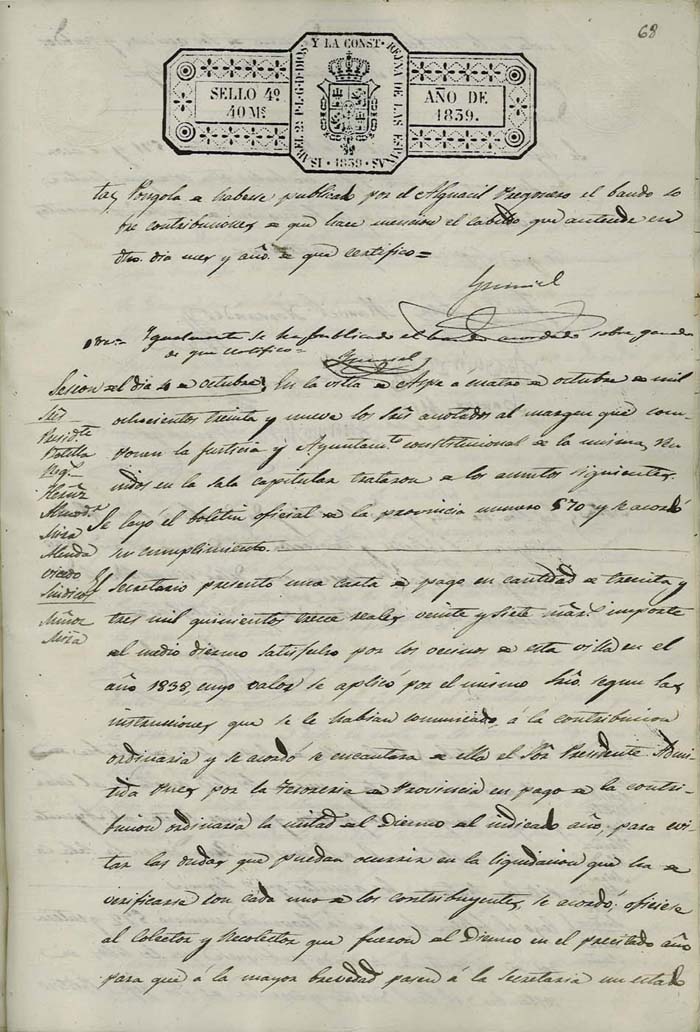 68
SELLO 4º
40 Mˢ
ISABEL 2ª P. L. G. D. DIOS Y LA CONST. REYNA DE LAS ESPAÑAS
1839
AÑO DE
1839.
tas, Pongola de haberse publicado por el Alguacil Pregonero el bando so
bre contribuciones de que hace mencion el cabildo que antecede en
dho. dia mes y año. de que certifico=
otra= Ygualmente se ha publicado el bando acordado sobre ganado
de que certifico=
Sesion del dia 4 de octubre, En la villa de Aspe a cuatro de octubre de mil
Sres
ochocientos treinta y nueve los Sres anotados al margen que com-
Presidte
ponen la Justicia y Ayuntamto constitucional de la misma, reu
Botella
nidos en la sala capitular trataron de los asuntos siguientes.
Regs
Almodr
Se leyó el boletin oficial de la provincia numero 570 y se acordó
Mira
su cumplimiento.
Almda
El Secretario presentó una carta de pago en cantidad de treinta y
Sindicos
tres mil quinientos trece reales veinte y siete mars. importe
Muñoz
Mira
del medio diezmo satisfecho por los vecinos de esta villa en el
año 1838, cuyo valor se aplicó por el mismo Srio. segun las
instrucciones que se le habian comunicado, á la contribucion
ordinaria y se acordó se encautara de ella el Sor Presidente Admi
tida pues por la Tesoreria de Provincia en pago de la contri-
bucion ordinaria la mitad del Diezmo del indicado año, para evi
tar las dudas que puedan ocurrir en la liquidacion que ha de
verificarse con cada uno de los contribuyentes, se acordó: oficiese
al Colector y Recolector que fueron del Diezmo en el precitado año
para que á la mayor brevedad pasen á la Secretaria un estado